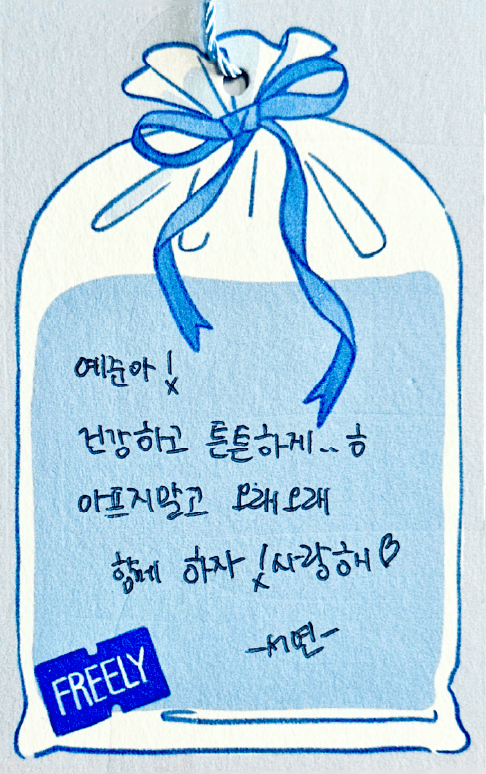 예준아!
건강하고 튼튼하게..ㅎ
아프지말고 오래오래
함께 하자! 사랑해♡
-서연-
FREELY